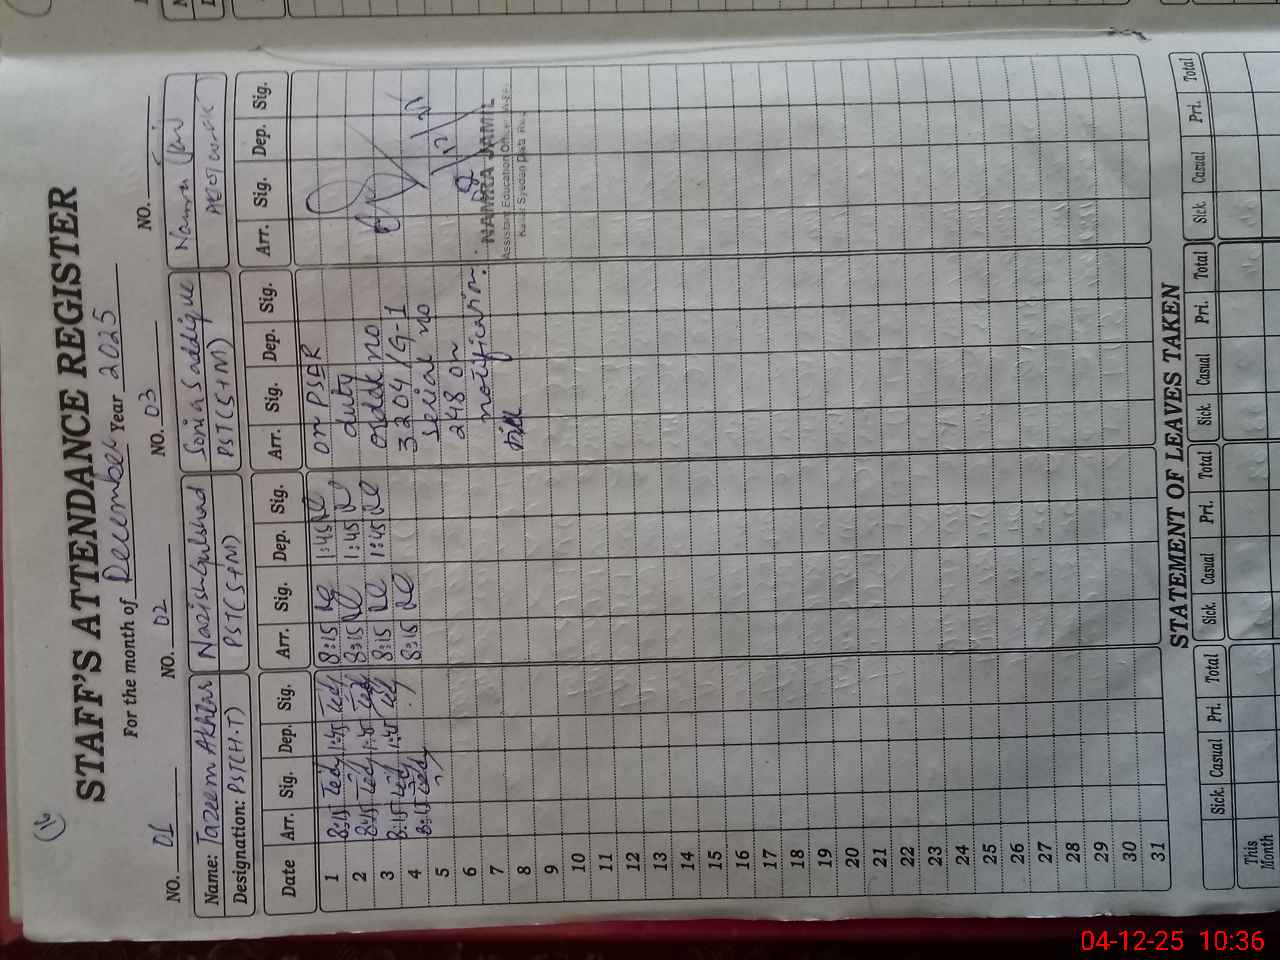 16
STAFF'S ATTENDANCE REGISTER
For the month of December Year 2025
NO. 01 NO. 02 NO. 03 NO.
Name: Tazeem Akhtar Nazish Gulshad Sonia Saddique
Designation: PST(H.T) PST(S+M) PST(S+M)
Date Arr. Sig. Dep. Sig. Arr. Sig. Dep. Sig. Arr. Sig. Dep. Sig. Arr. Sig. Dep. Sig.
1 8:15 1:45 8:15 1:45 on PSER
2 8:15 1:45 8:15 1:45 duty
3 8:15 1:45 8:15 1:45 order no
4 8:15 8:15 3204/G-1
5 serial no
6 248 on
7 notification.
8
NAMRA JAMIL
Assistant Education Officer
9
10
11
12
13
14
15
16
17
18
19
20
21
22
23
24
25
26
27
28
29
30
31
STATEMENT OF LEAVES TAKEN
Sick. Casual Pri. Total Sick. Casual Pri. Total Sick. Casual Pri. Total Sick. Casual Pri. Total
This Month
04-12-25 10:36